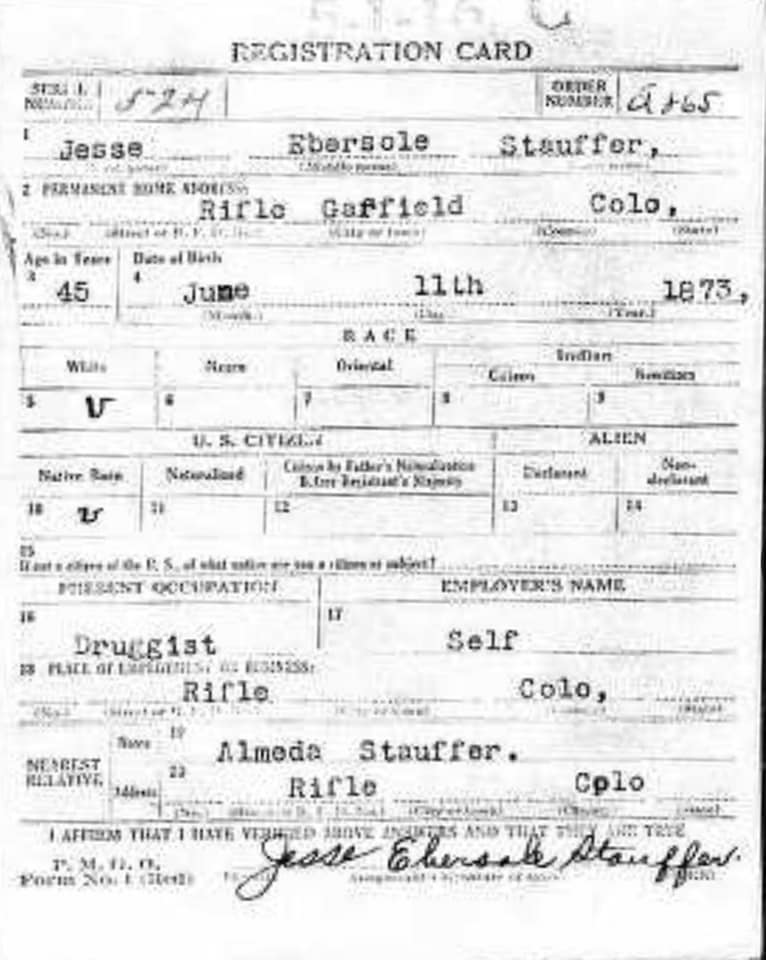 REGISTRATION CARD
SERIAL NUMBER 524 ORDER NUMBER
1 Jesse Ebersole Stauffer,
2 PERMANENT HOME ADDRESS:
Rifle Gaffield Colo,
(No.) (Street or R. F. D. No.) (City or town) (County) (State)
Age in Years Date of Birth
3 45 4 June 11th 1873,
(Month.) (Day.) (Year.)
RACE
White Negro Oriental Indian
Citizen Noncitizen
5 v 6 7 8 9
U. S. CITIZEN ALIEN
Native Born Naturalized Citizen by Father's Naturalization Before Registrant's Majority Declarant Non-declarant
10 v 11 12 13 14
15
If not a citizen of the U. S., of what nation are you a citizen or subject?
PRESENT OCCUPATION EMPLOYER'S NAME
16 17
Druggist Self
18 PLACE OF EMPLOYMENT OR BUSINESS:
Rifle Colo,
(No.) (Street or R. F. D. No.) (City or town) (County) (State)
NEAREST RELATIVE Name 19 Almeda Stauffer.
Address 20 Rifle Cplo
(No.) (Street or R. F. D. No.) (City or town) (County) (State)
I AFFIRM THAT I HAVE VERIFIED ABOVE ANSWERS AND THAT THEY ARE TRUE
P. M. G. O.
Form No. 1 (Red) Jesse Ebersole Stauffer.